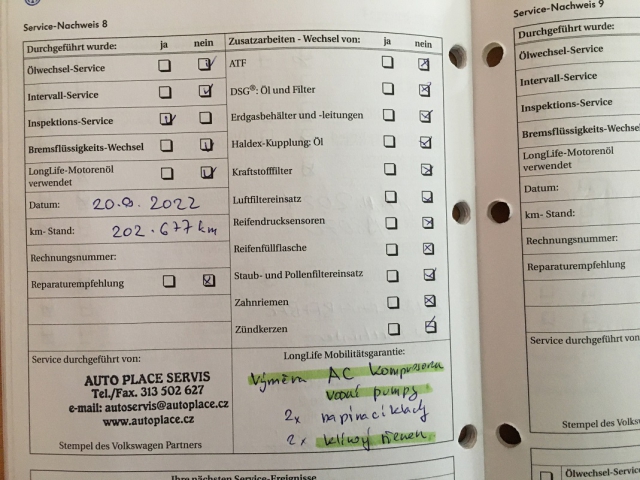 Service-Nachweis 8
Durchgeführt wurde: ja nein
Ölwechsel-Service
Intervall-Service
Inspektions-Service
Bremsflüssigkeits-Wechsel
LongLife-Motorenöl
verwendet
Datum: 20.9. 2022
km- Stand: 202.677 km
Rechnungsnummer:
Reparaturempfehlung
Zusatzarbeiten - Wechsel von: ja nein
ATF
DSG®: Öl und Filter
Erdgasbehälter und -leitungen
Haldex-Kupplung: Öl
Kraftstofffilter
Luftfiltereinsatz
Reifendrucksensoren
Reifenfüllflasche
Staub- und Pollenfiltereinsatz
Zahnriemen
Zündkerzen
Service durchgeführt von:
AUTO PLACE SERVIS
Tel./Fax. 313 502 627
e-mail: autoservis@autoplace.cz
www.autoplace.cz
Stempel des Volkswagen Partners
LongLife Mobilitätsgarantie:
Výměna AC kompresoru
vodní pumpy
2x napínací kladky
2x klínový řemen
Ihre nächsten Service-Ereignisse
Service-Nachweis 9
Durchgeführt wurde:
Ölwechsel-Service
Intervall-Service
Inspektions-Service
Bremsflüssigkeits-Wechsel
LongLife-Motorenöl
verwendet
Datum:
km- Stand:
Rechnungsnummer:
Reparaturempfehlung
Service durchgeführt von
Stempel des
Ölwechsel-Service